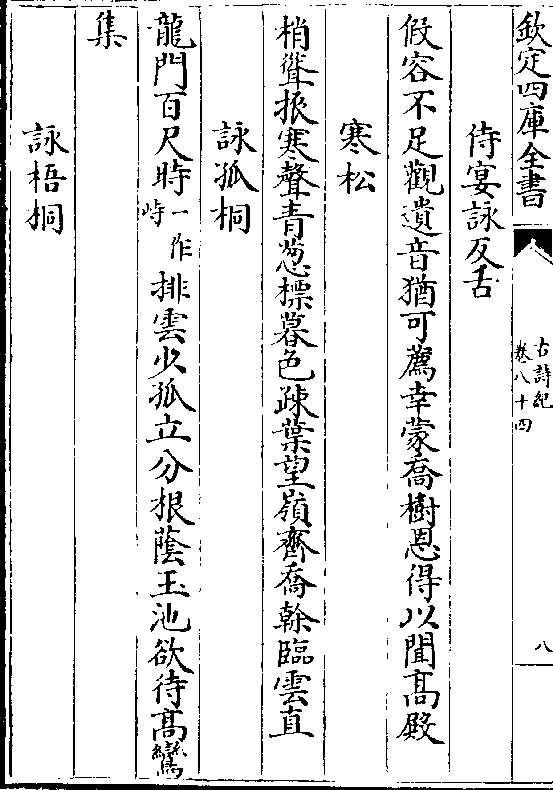 欽定四庫全書
古詩紀
卷八十四
八
侍宴詠反舌
假容不足觀遺音猶可薦幸蒙喬樹恩得以聞髙殿
寒松
梢聳振寒聲青葱標暮色疎葉望嶺齊喬幹臨雲直
詠孤桐
龍門百尺時一作峙排雲少孤立分根蔭玉池欲待髙鸞
集
詠梧桐